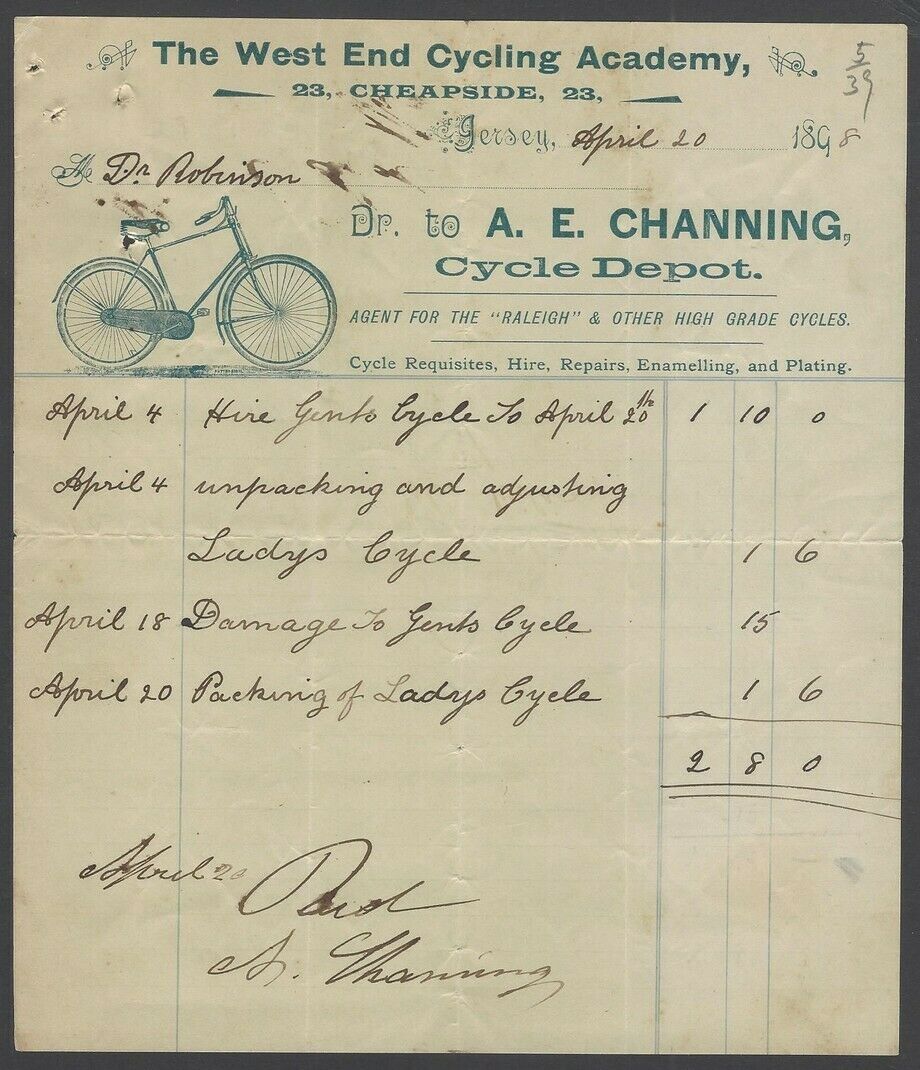 The West End Cycling Academy,
5/39
23, CHEAPSIDE, 23,
Jersey, April 20 1898
M Dr Robinson
Dr. to A. E. CHANNING,
Cycle Depot.
AGENT FOR THE "RALEIGH" & OTHER HIGH GRADE CYCLES.
Cycle Requisites, Hire, Repairs, Enamelling, and Plating.
April 4 Hire Gents Cycle To April 20th 1 10 0
April 4 unpacking and adjusting
Ladys Cycle 1 6
April 18 Damage To Gents Cycle 15
April 20 Packing of Ladys Cycle 1 6
2 8 0
April 20 Paid
A. Channing